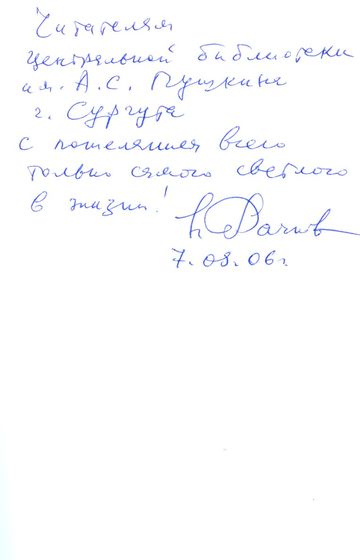 Читателям
центральной библиотеки
им. А.С. Пушкина
г. Сургута
с пожеланием всего
только самого светлого
в жизни!
7.08.06г.